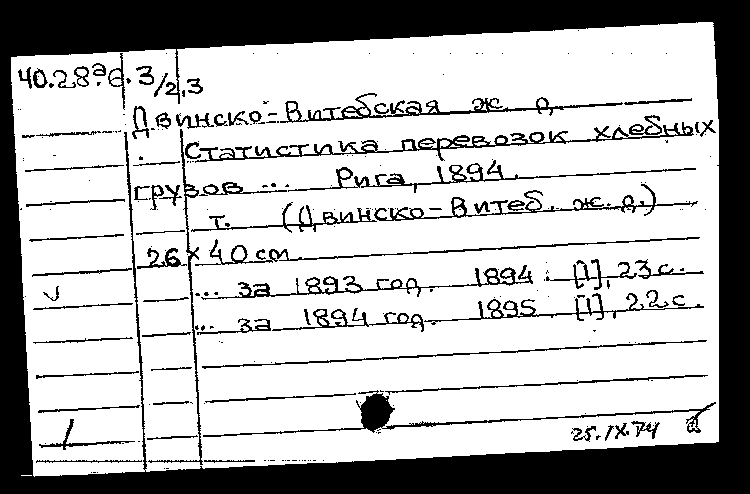 40.28ª6.3/2,3
Двинско-Витебская ж. д.
Статистика перевозок хлебных
грузов ... Рига, 1894.
т. (Двинско-Витеб. ж. д.)
26 × 40 см
... за 1893 год. 1894. [1], 23 с.
... за 1894 год. 1895. [1], 22 с.
25.IX.74